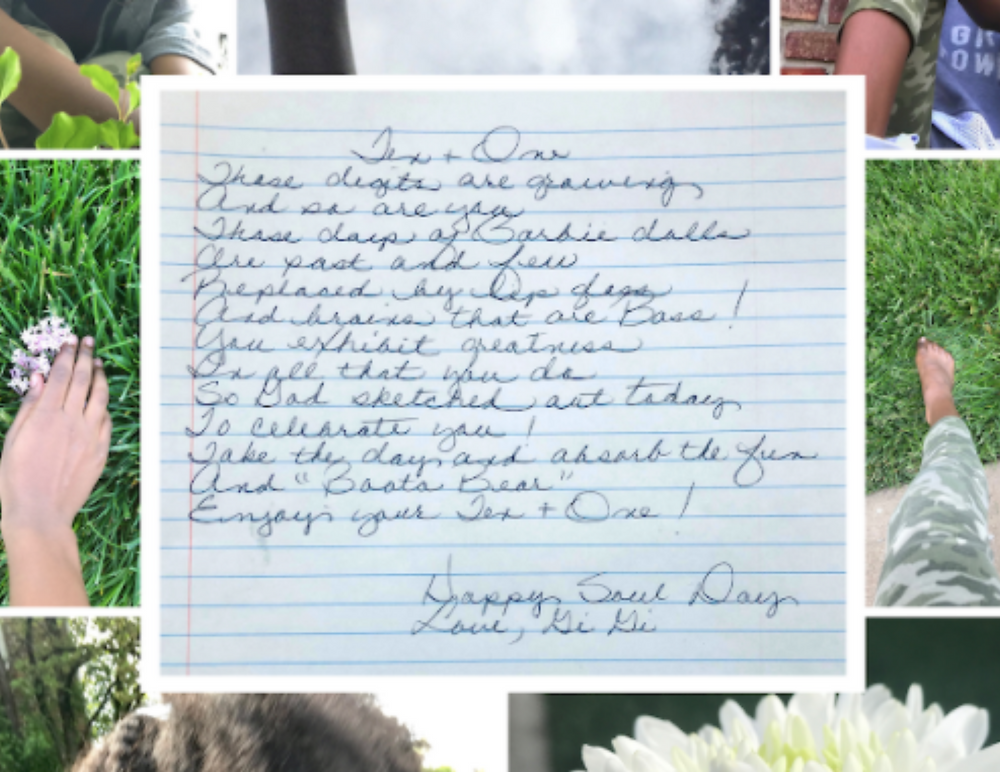 Ten + One
These digits are growing
And so are you
Those days of Barbie dolls
Are past and few
Replaced by lip gloss
And brains that are Boss!
You exhibit greatness
In all that you do
So God sketched out today
To celebrate you!
Take the day and absorb the fun
And "Boota Bear"
Enjoy your Ten + One!
Happy Soul Day
Love, Gi Gi